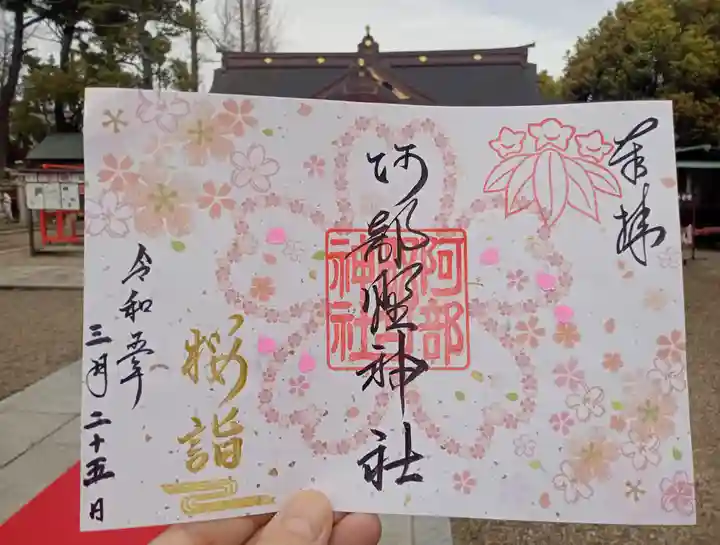 奉拝
阿部野神社
阿部野神社
桜詣
令和五年
三月二十五日